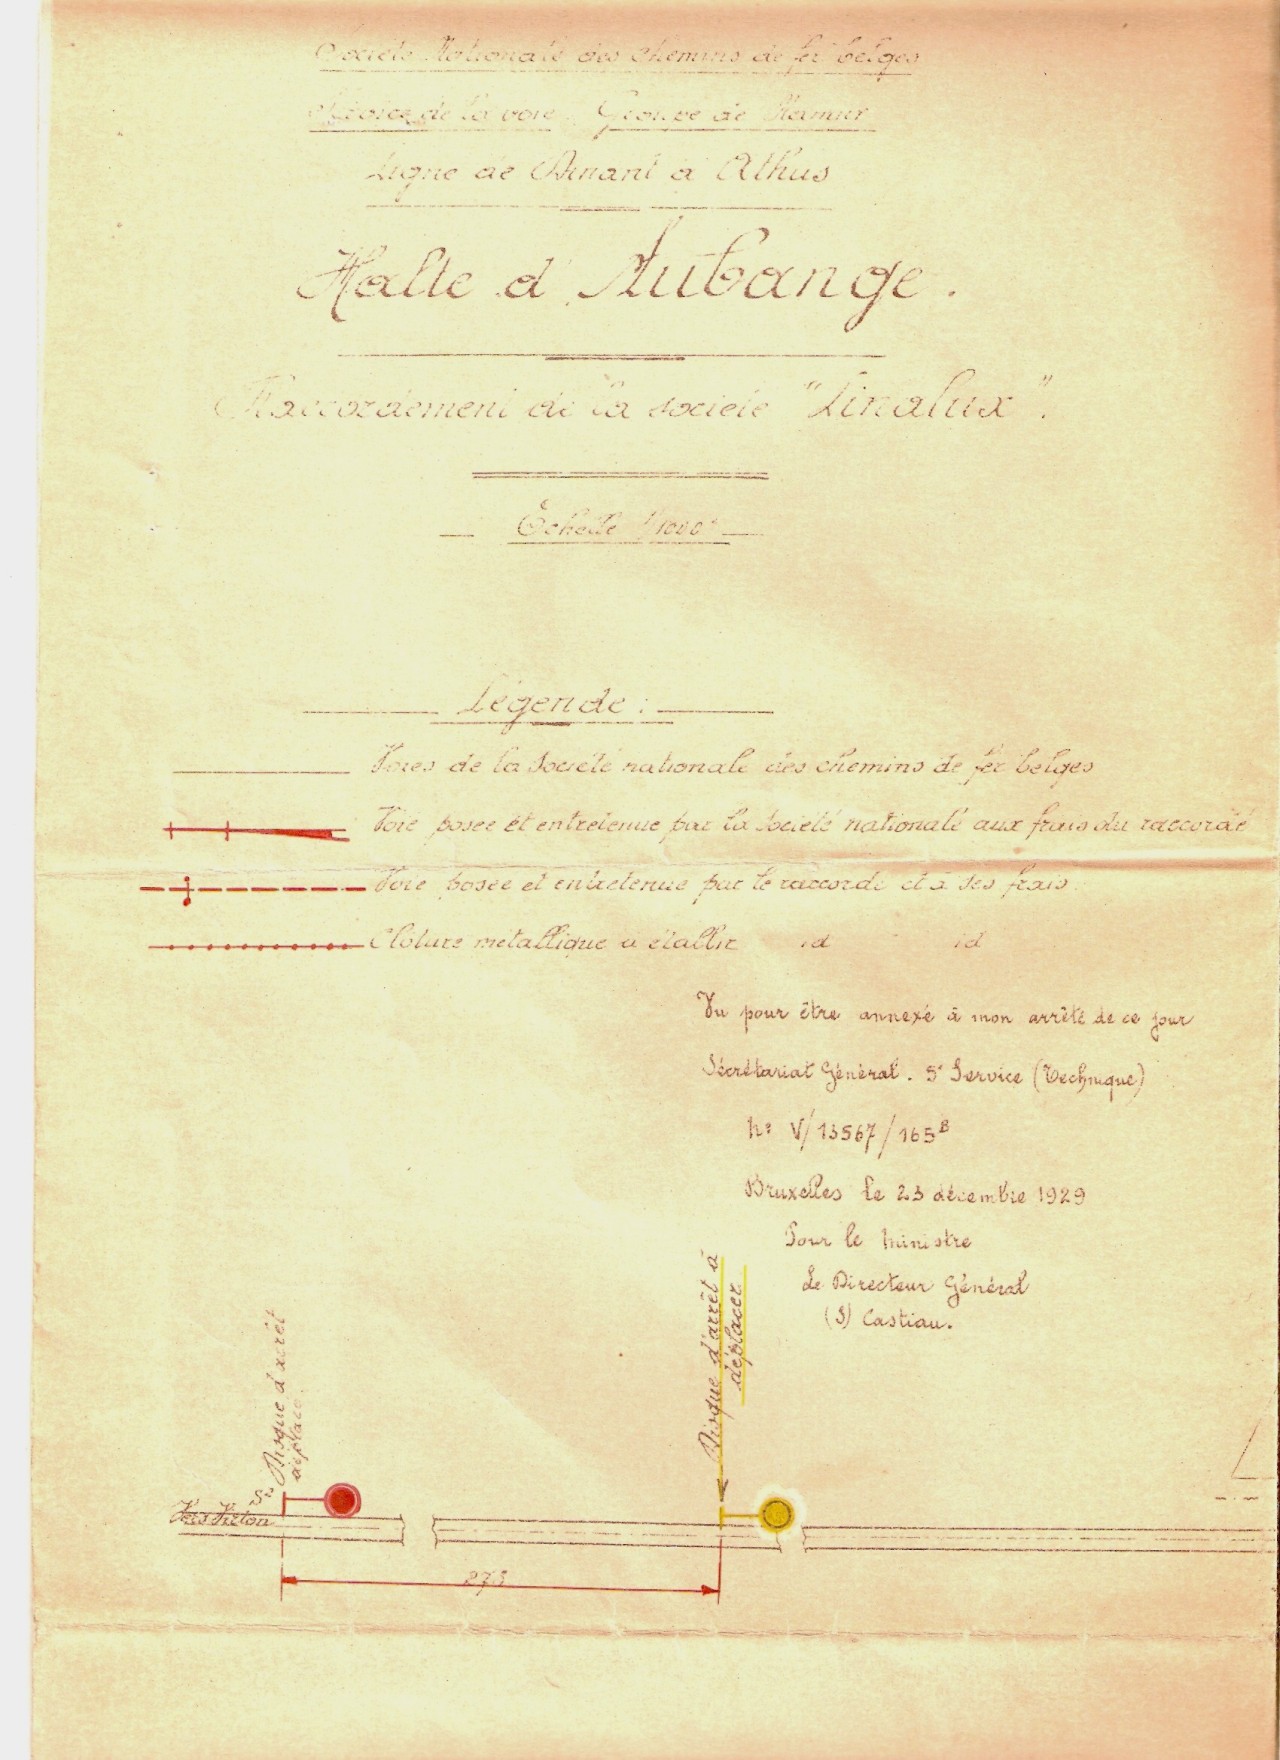 Société Nationale des chemins de fer belges
Service de la voie. Groupe de Namur
Ligne de Dinant à Athus
Halte d'Aubange.
Raccordement de la société "Linalux".
Echelle 1/1000e
Légende:
Voies de la Société nationale des chemins de fer belges
Voie posée et entretenue par la Société nationale aux frais du raccordé
Voie posée et entretenue par le raccordé et à ses frais.
Clôture métallique à établir id id
Vu pour être annexé à mon arrêté de ce jour
Sécrétariat Général. 5e Service (Technique)
no V/13567/165B
Bruxelles le 23 décembre 1929
Pour le Ministre
Le Directeur Général
(S) Castiau.
Disque d'arrêt à
déplacer
Disque d'arrêt
déplacé.
Vers Virton